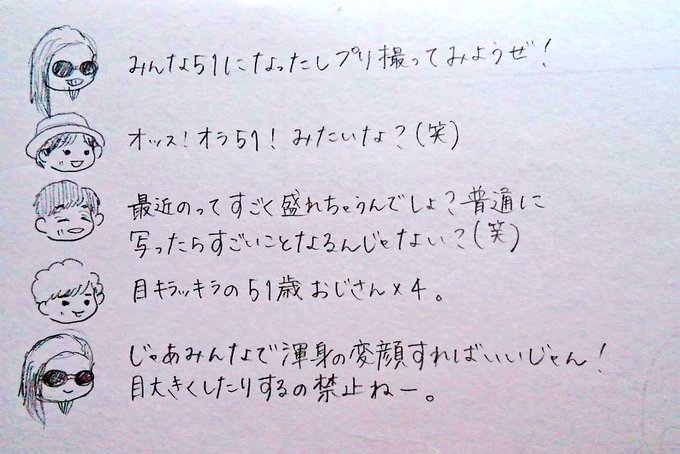 みんな51になったしプリ撮ってみようぜ！
オッス！オラ51！みたいな？(笑)
最近のってすごく盛れちゃうんでしょ？普通に
写ったらすごいことなるんじゃない？(笑)
目キラッキラの51歳おじさん×4。
じゃあみんなで渾身の変顔すればいいじゃん！
目大きくしたりするの禁止ねー。